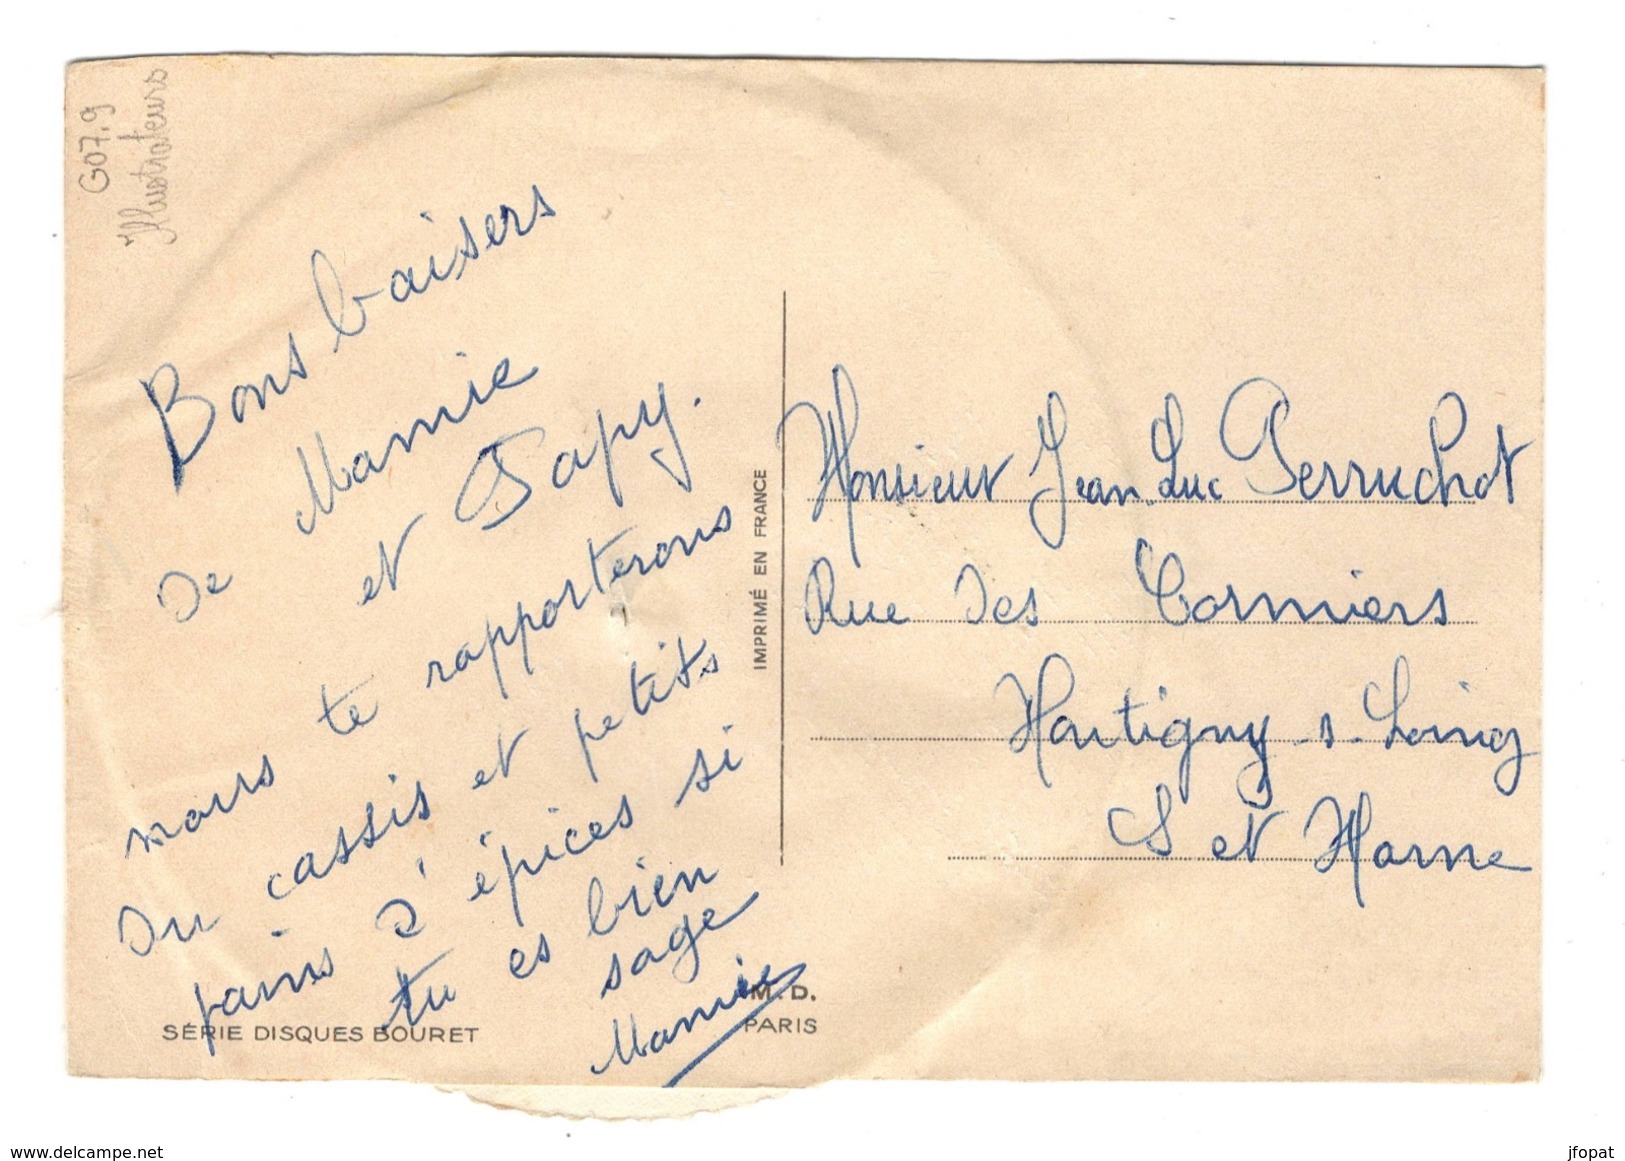 G07.9
Illustrateurs
Bons baisers
de Mamie
et Papy.
nous te rapporterons
du cassis et petits
pains d'épices si
tu es bien
sage
Mamie
SÉRIE DISQUES BOURET
M.D.
PARIS
IMPRIMÉ EN FRANCE
Monsieur Jean Luc Perruchot
Rue des Cormiers
Montigny-s-Loing
S et Marne
www.delcampe.net
jfopat